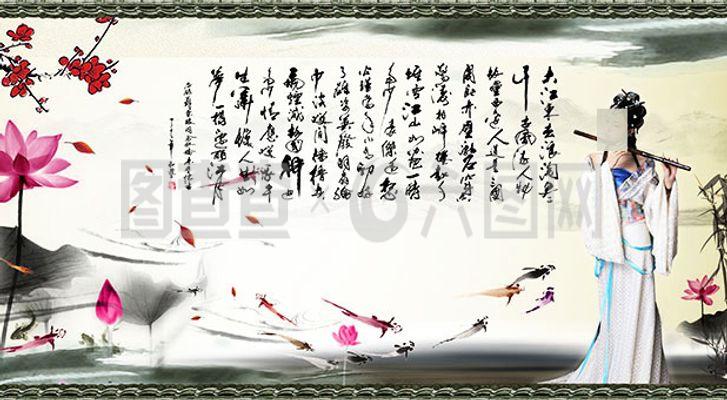 大江東去浪淘盡
千古風流人物
故壘西邊人道是三國
周郎赤壁亂石穿空
驚濤拍岸捲起千
堆雪江山如畫一時
多少豪傑遥想
公瑾當年小喬初嫁
了雄姿英發羽扇綸
巾談笑間檣櫓
煙滅故國神遊
多情應笑我早
生華髮人生如
夢一樽還酹江月
六图网